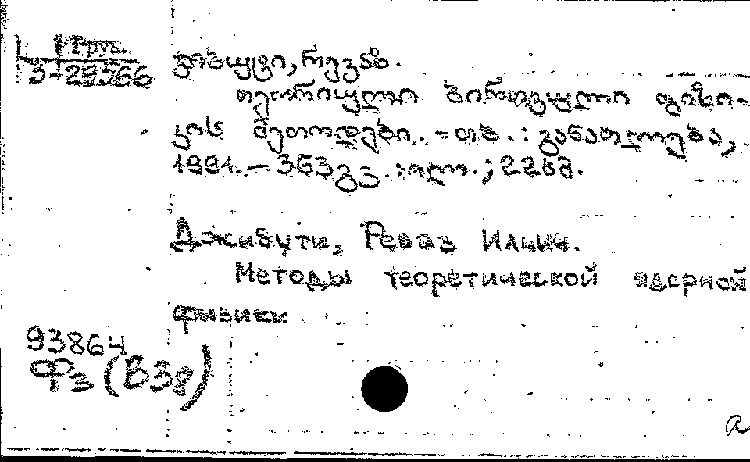 Груз.
3-29366
ჯიბუტი, რევაზ.
თეორიული ბირთვული ფიზი-
კის მეთოდები. - თბ. : განათლება,
1991. - 363 გვ. : ილ. ; 22 სმ.
Джибути, Реваз Ильич.
Методы теоретической ядерной
физики
93864
Фз (В38)
a